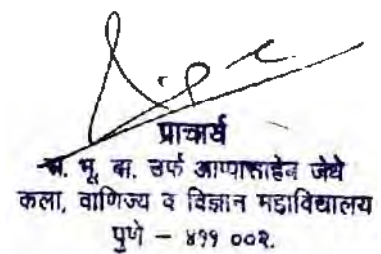 प्राचार्य
स. भू. वा. उर्फ आप्पासाहेब जेधे
कला, वाणिज्य व विज्ञान महाविद्यालय
पुणे – ४११ ००२.